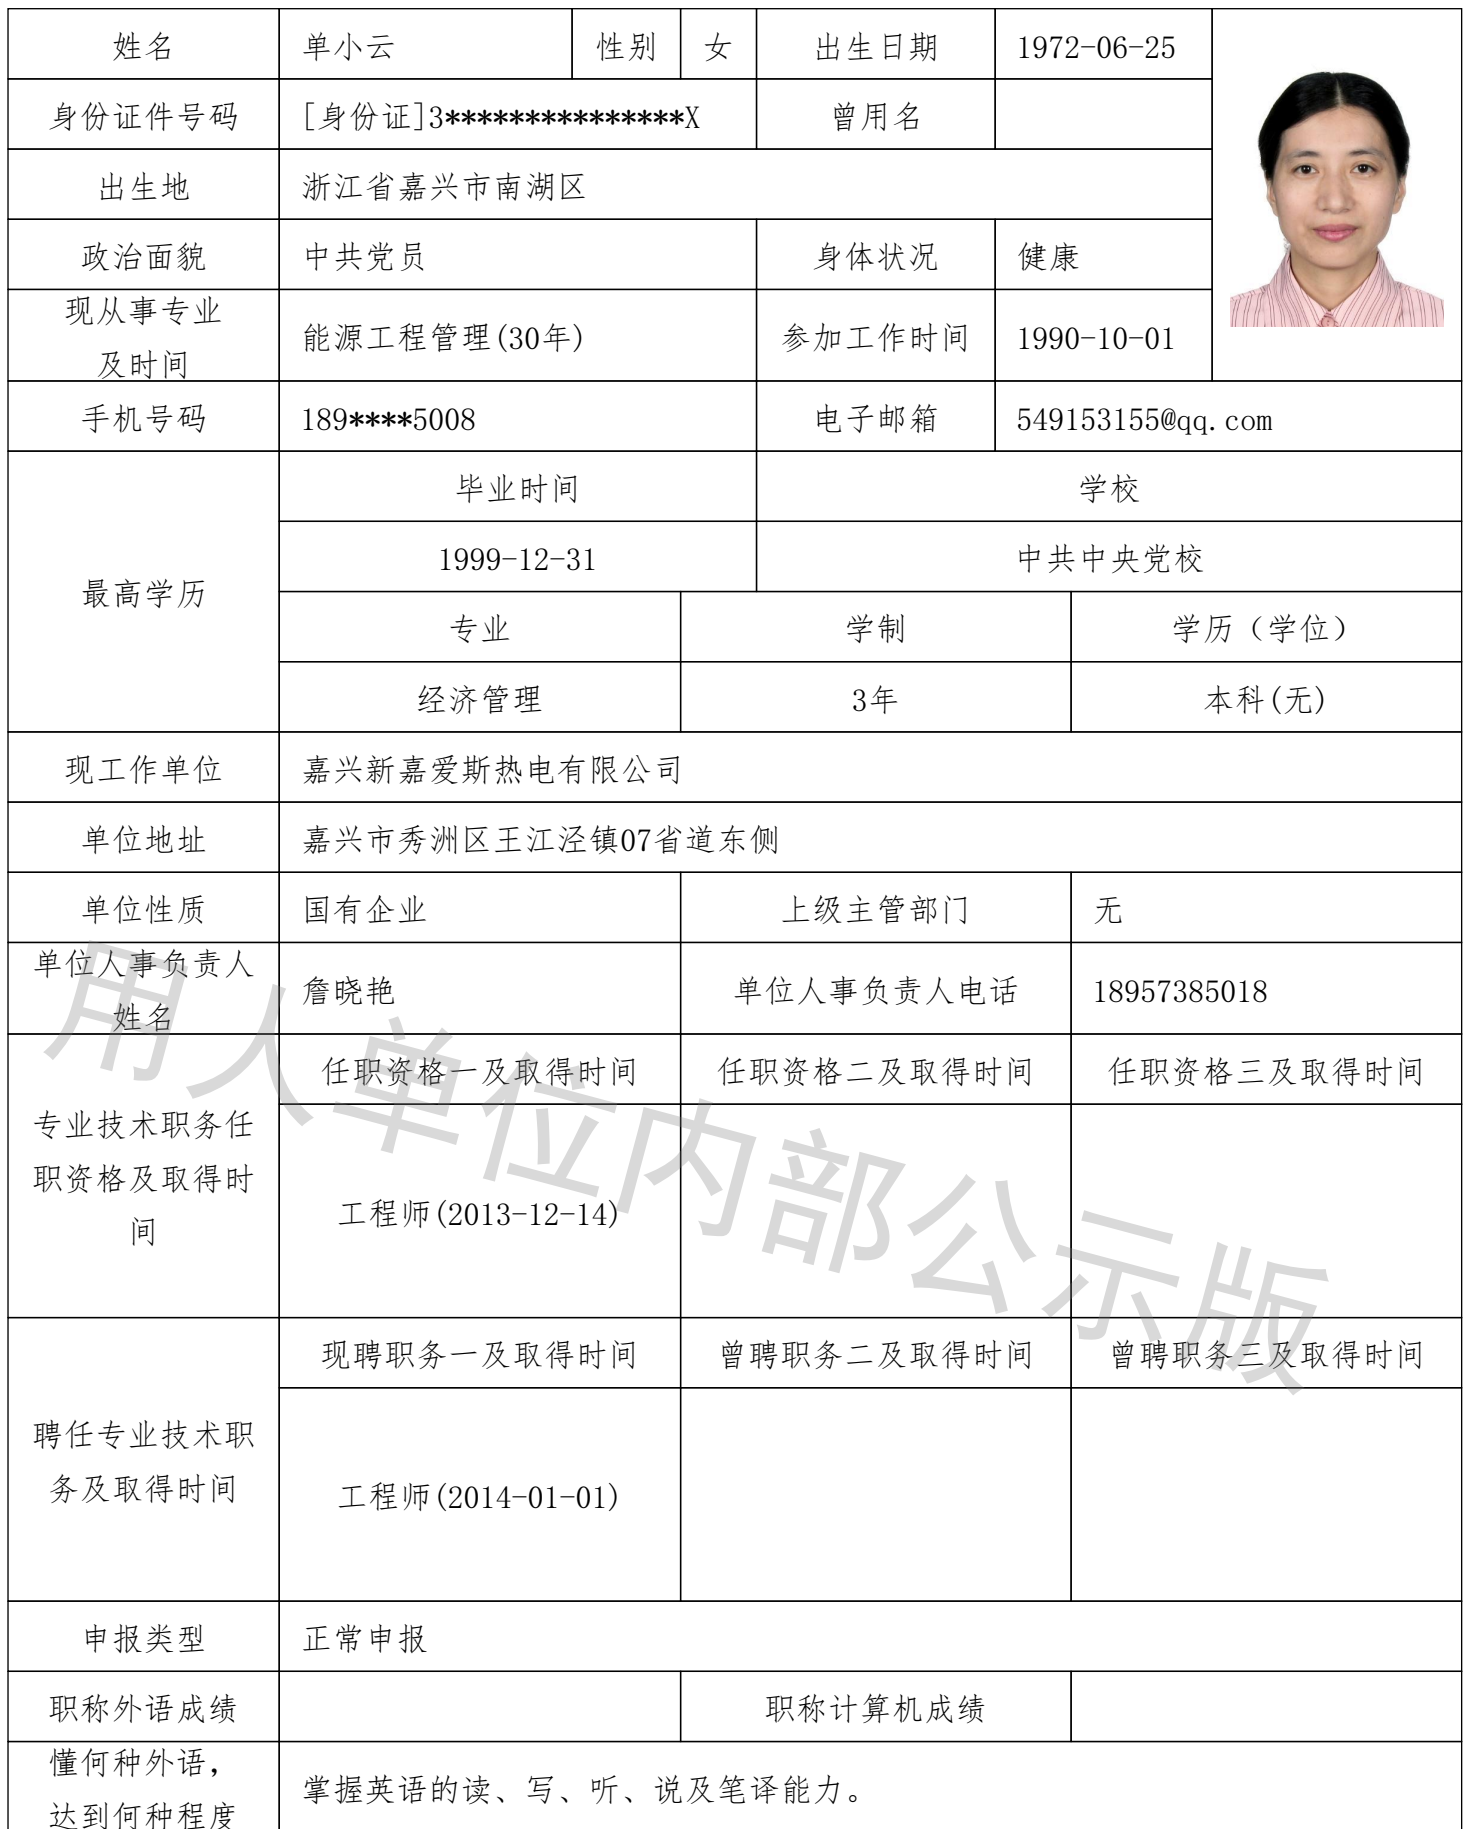 姓名 单小云 性别 女 出生日期 1972-06-25
身份证件号码 [身份证]3***************X 曾用名
出生地 浙江省嘉兴市南湖区
政治面貌 中共党员 身体状况 健康
现从事专业
及时间 能源工程管理(30年) 参加工作时间 1990-10-01
手机号码 189****5008 电子邮箱 549153155@qq.com
最高学历
毕业时间 学校
1999-12-31 中共中央党校
专业 学制 学历（学位）
经济管理 3年 本科(无)
现工作单位 嘉兴新嘉爱斯热电有限公司
单位地址 嘉兴市秀洲区王江泾镇07省道东侧
单位性质 国有企业 上级主管部门 无
单位人事负责人
姓名 詹晓艳 单位人事负责人电话 18957385018
专业技术职务任
职资格及取得时
间
任职资格一及取得时间 任职资格二及取得时间 任职资格三及取得时间
工程师(2013-12-14)
聘任专业技术职
务及取得时间
现聘职务一及取得时间 曾聘职务二及取得时间 曾聘职务三及取得时间
工程师(2014-01-01)
申报类型 正常申报
职称外语成绩 职称计算机成绩
懂何种外语，
达到何种程度 掌握英语的读、写、听、说及笔译能力。
用人单位内部公示版